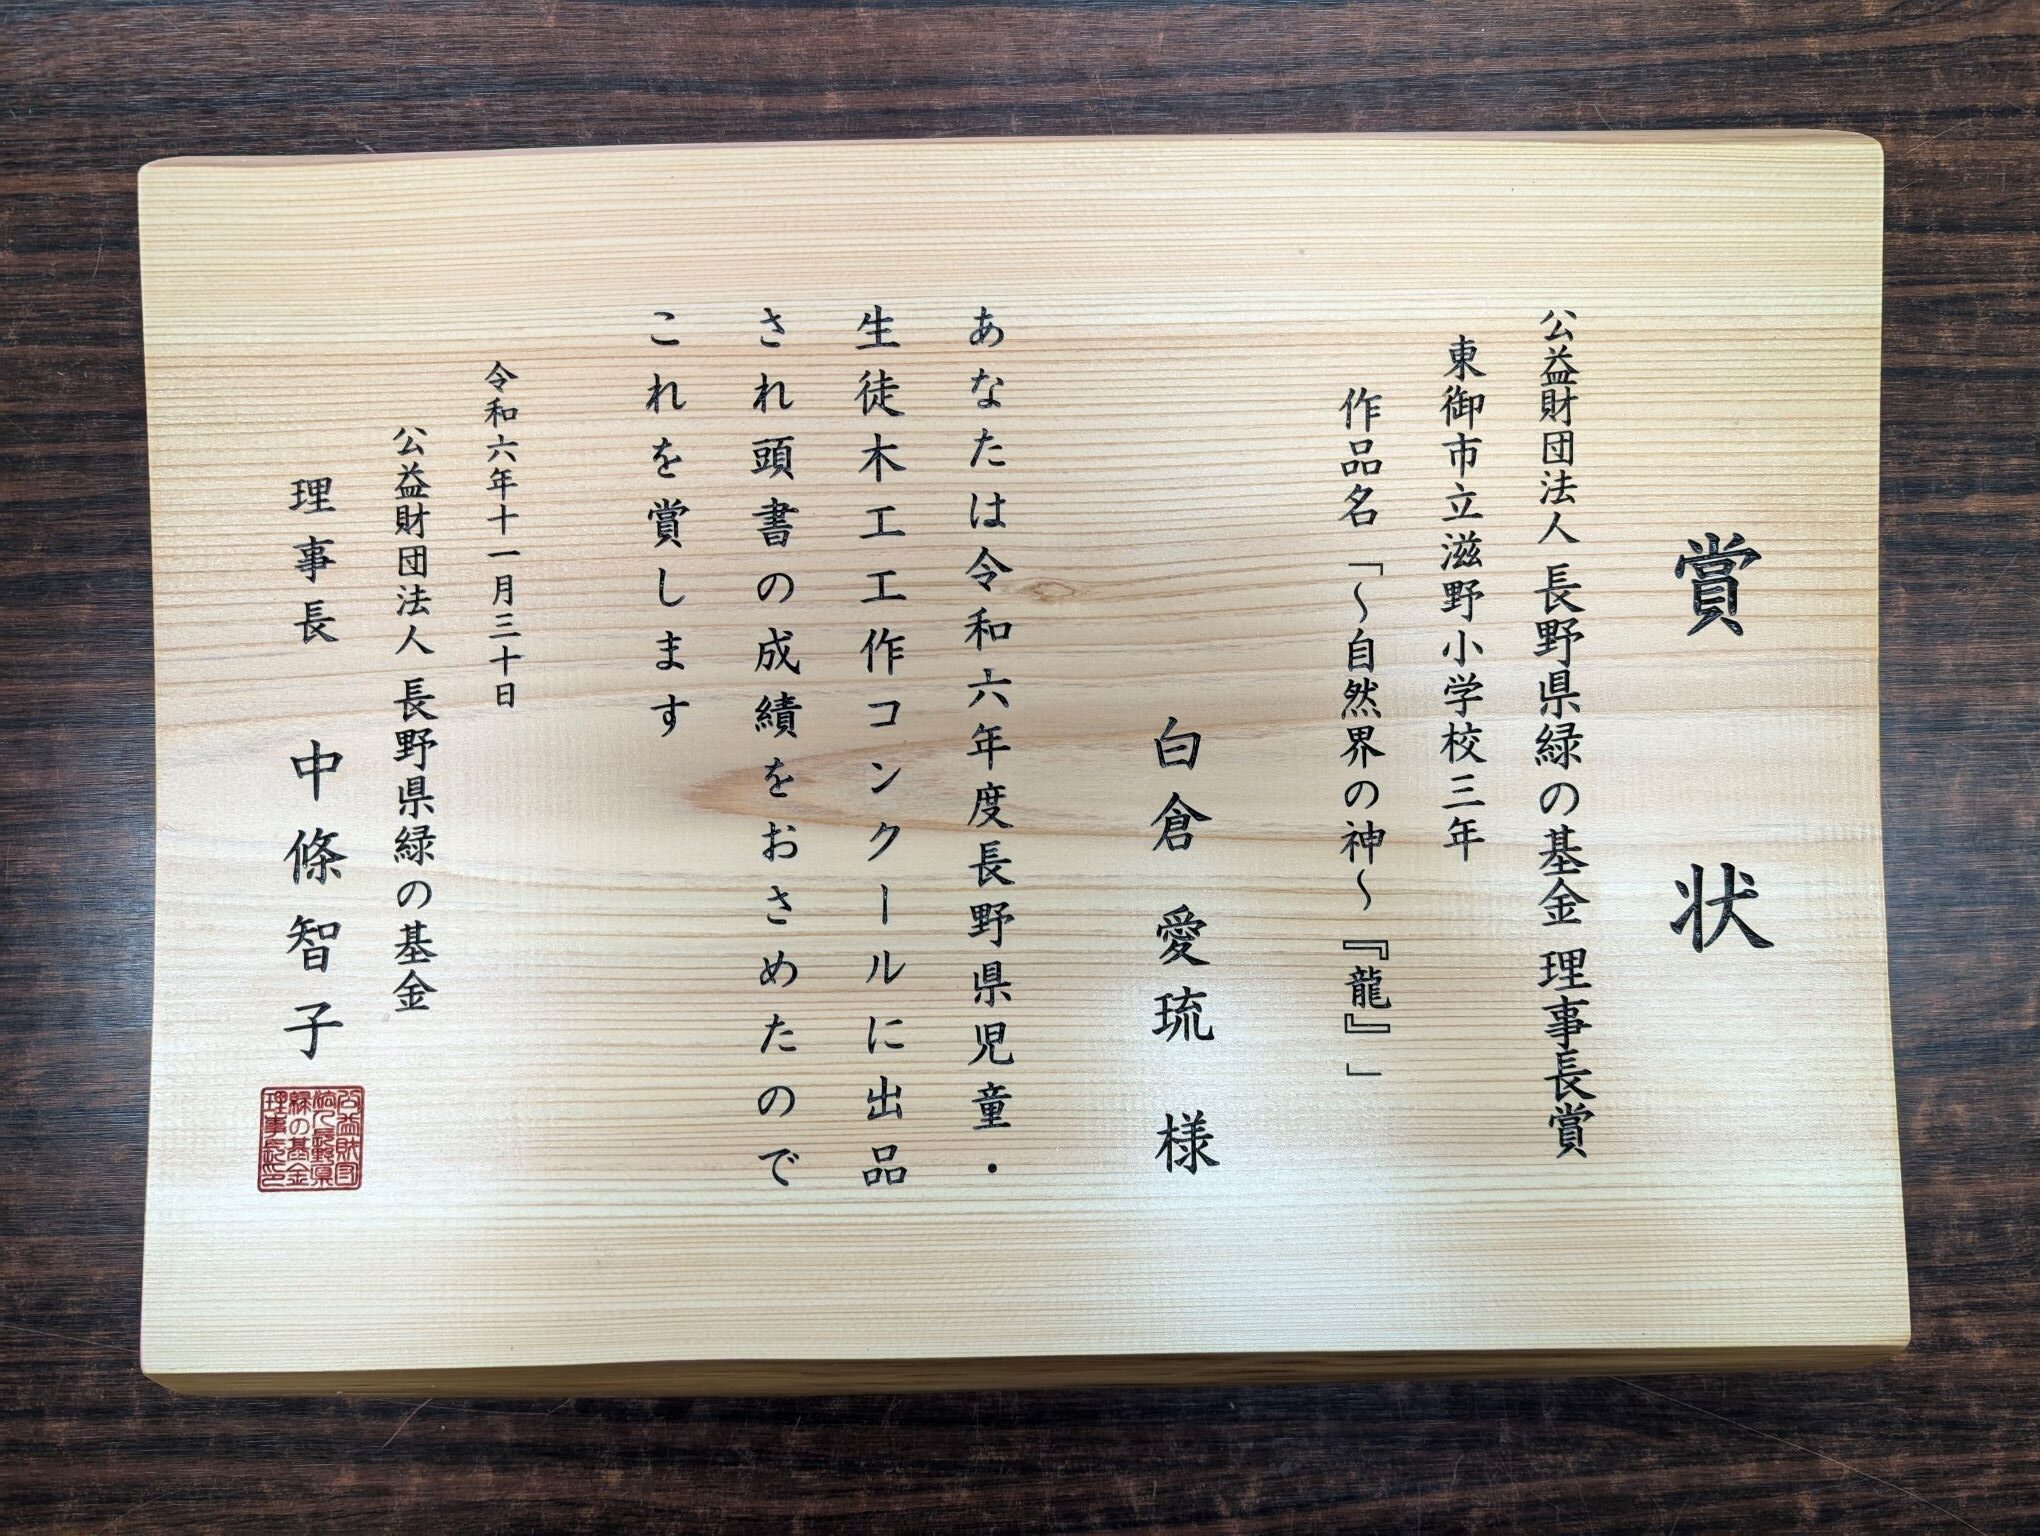 賞状
公益財団法人 長野県緑の基金 理事長賞
東御市立滋野小学校三年
作品名「～自然界の神～『龍』」
白倉愛琉 様
あなたは令和六年度長野県児童・
生徒木工工作コンクールに出品
され頭書の成績をおさめたので
これを賞します
令和六年十一月三十日
公益財団法人 長野県緑の基金
理事長 中條智子
公益財団
法人長野県
緑の基金
理事長印